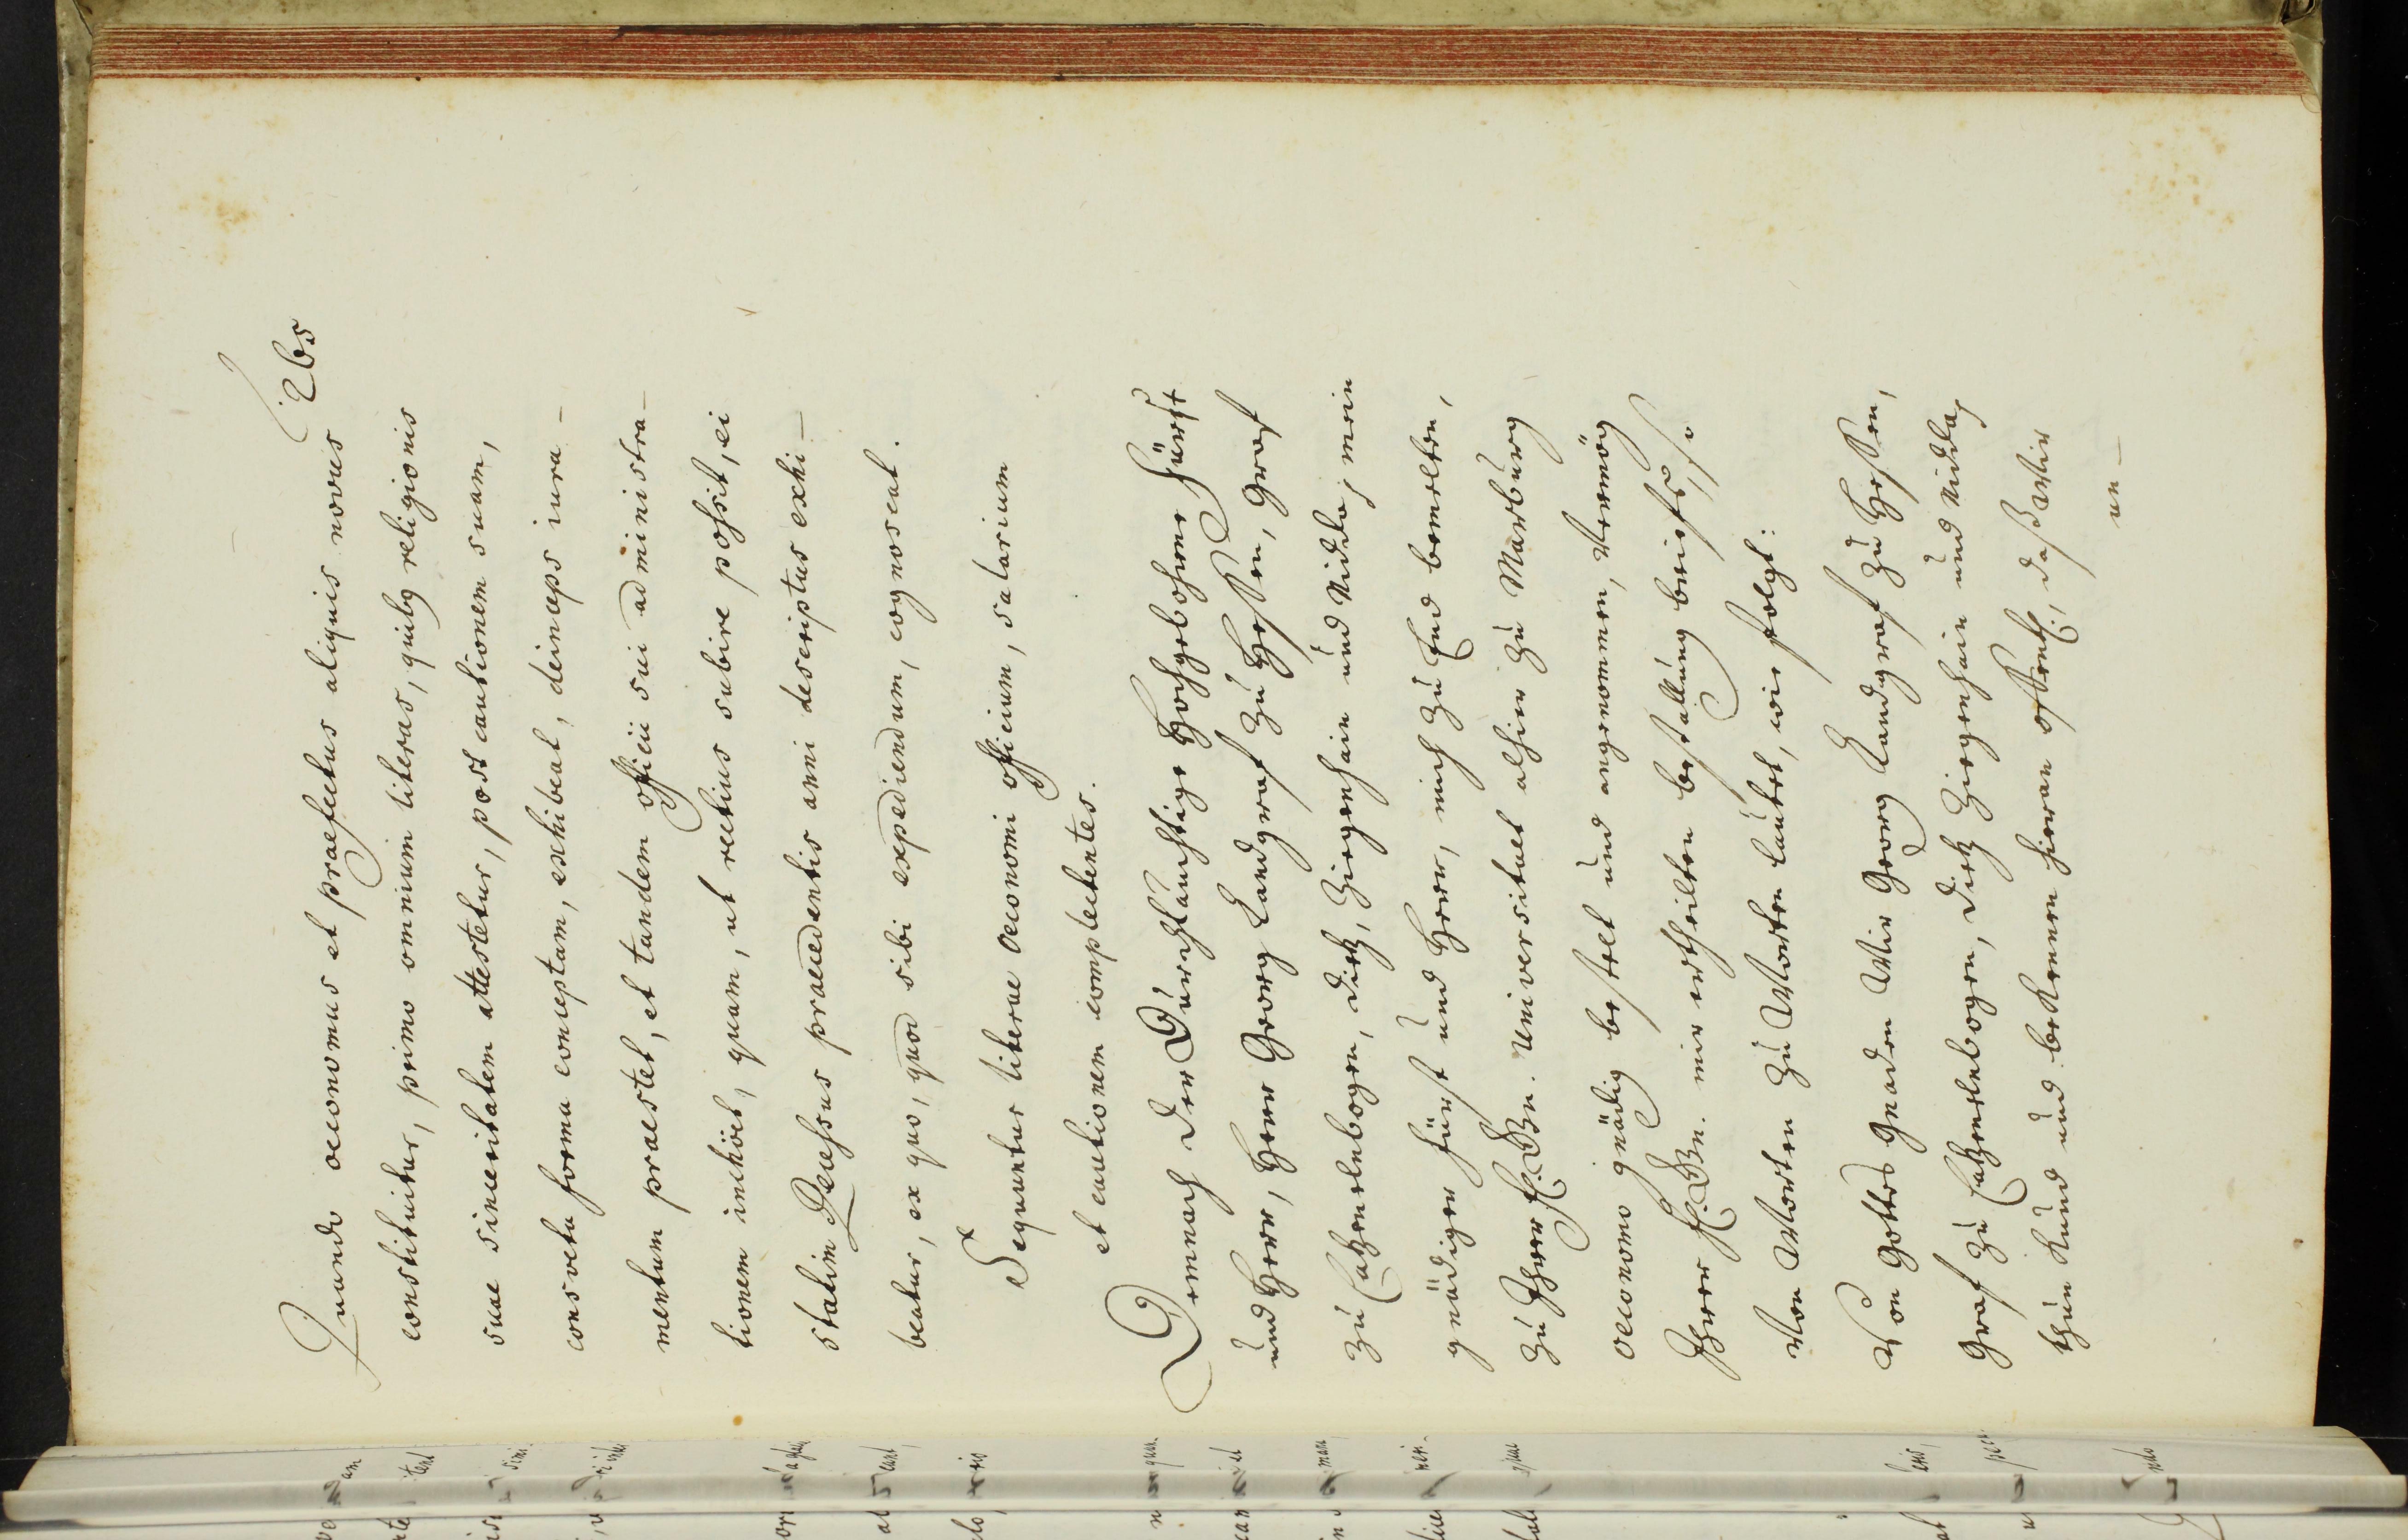 265
Quando oeconomus et praefectus aliquis novus
constituitur, primo omnium literas, quibq religionis
suae sinceritatem attestetur, post cautionem suam,
consveta forma conceptam, exhibeat, deinceps iura-
mentum praestet, et tandem officii sui administra-
tionem inchöet, quam, ut rectius subire possit, ei
statim Recessus praecedentis anni descriptus exhi-
beatur, ex quo, quod sibi expediendum, cognoscat.
Sequuntur literae oeconomi officium, salarium
et cautionem complectentes.
Demnach der Dúrchläuchtige Hochgebohrne Fúrst
únd Herr, Herr Georg Landgraf zú Hessen, Graf
zú Catzenelnbogen, Dietz, Ziegenhain únd Nidda, mein
gnädiger Fúrst únd Herr, mich zú End benelten,
zú Ihrer F. Gn. Universitaet alhier zú Marbúrg
oeconomo gnädig bestelt únd angenommen, vermög
Ihrer F. Gn. mir ertheilten bestallúng briefs, so
von Worten zú Worten laútet, wie folgt:
Von Gottes Gnaden Wir Georg Landgraf zú Hessen,
Graf zú Catzenelnbogen, Dietz Ziegenhain únd Nidda,
thún kúnd únd bekennen hieran öffentl., daß Wir
un-